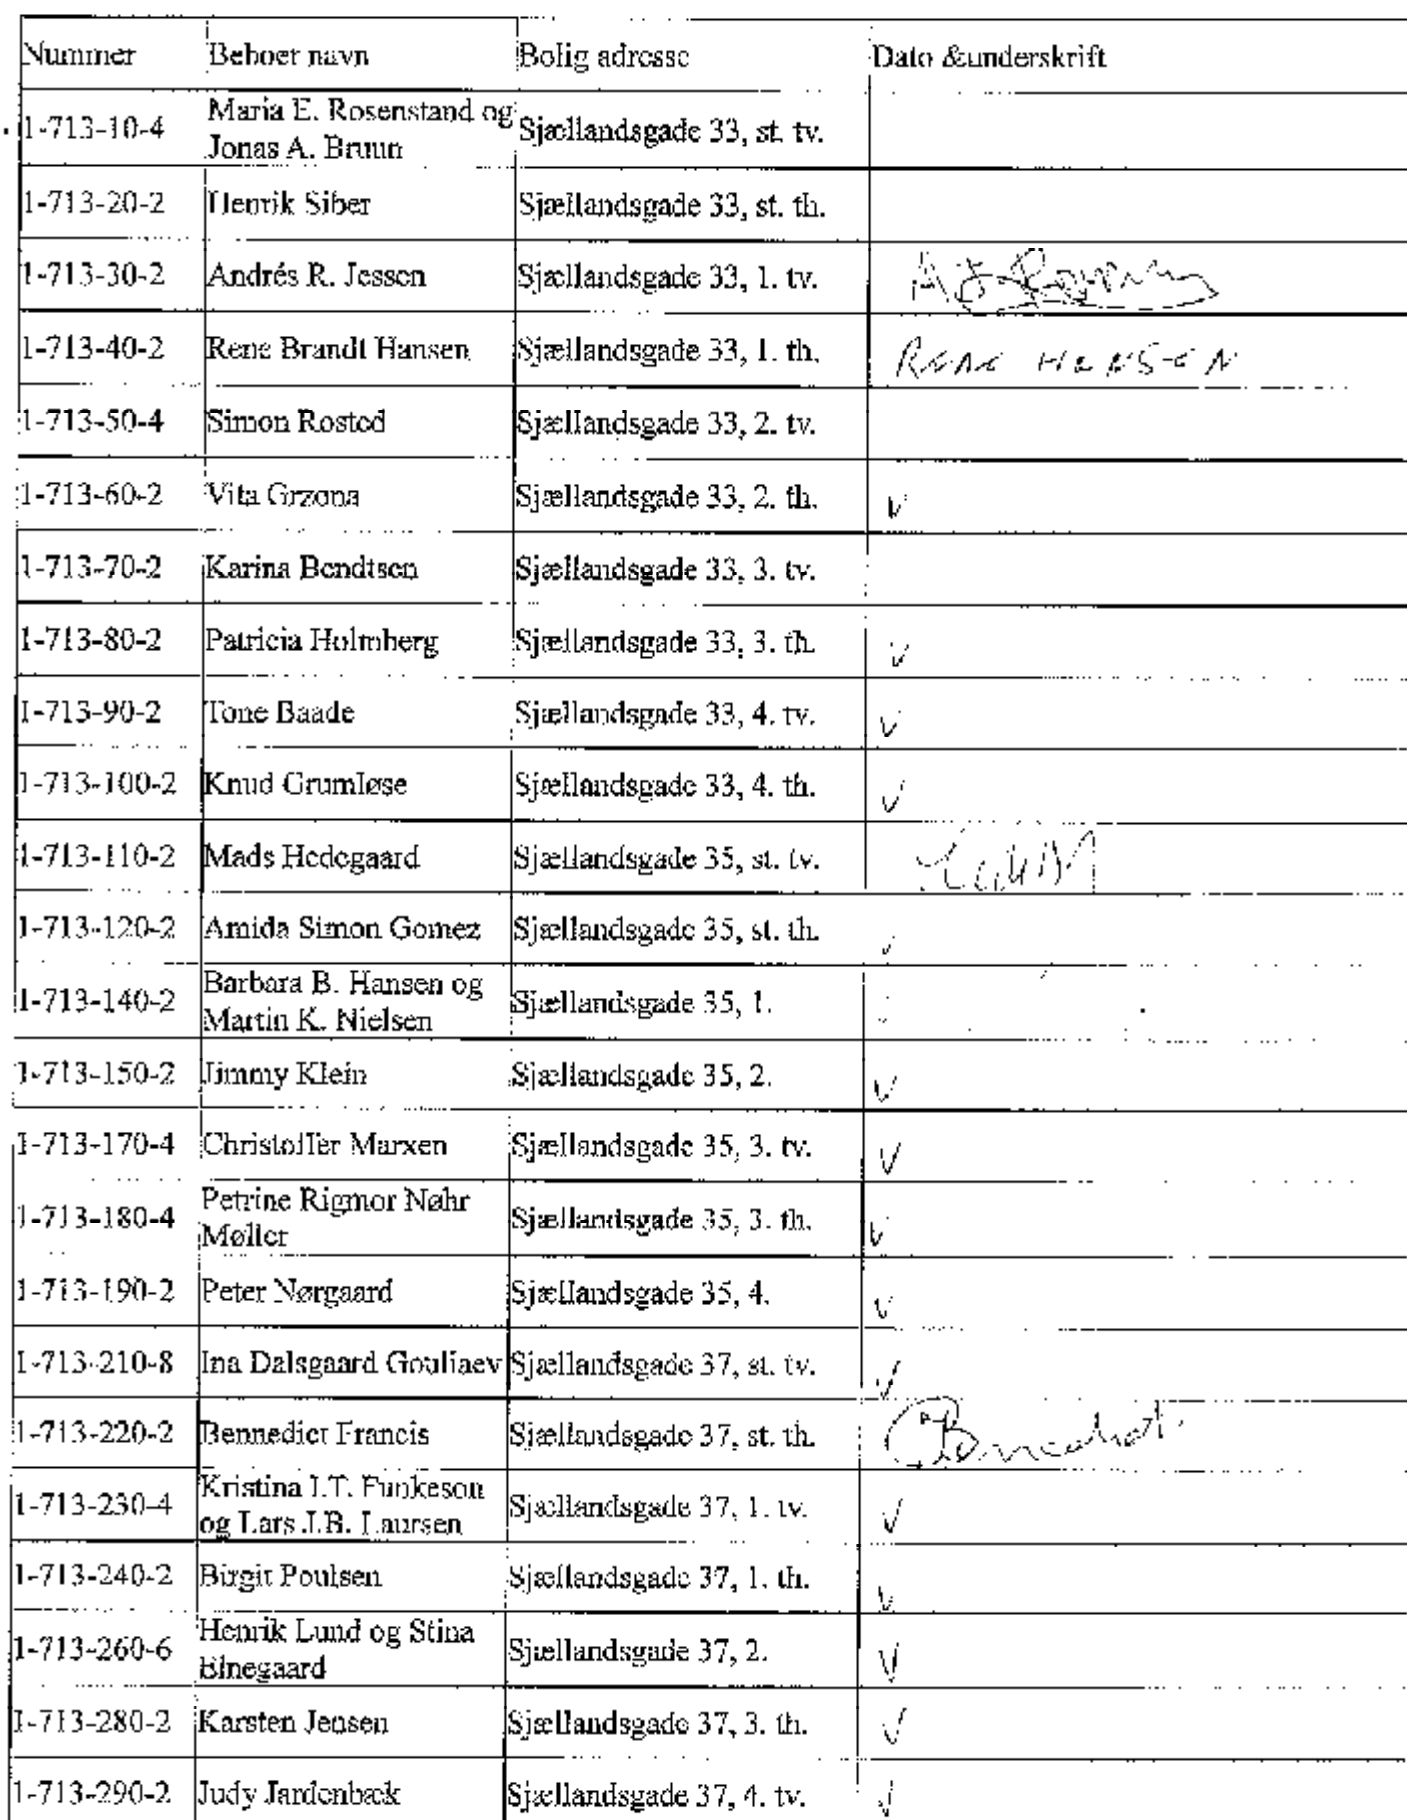 Nummer Beboer navn Bolig adresse Dato &underskrift
1-713-10-4 Maria E. Rosenstand og Jonas A. Bruun Sjællandsgade 33, st. tv.
1-713-20-2 Henrik Siber Sjællandsgade 33, st. th.
1-713-30-2 Andrés R. Jessen Sjællandsgade 33, 1. tv.
1-713-40-2 Rene Brandt Hansen Sjællandsgade 33, 1. th. RENE HANSEN
1-713-50-4 Simon Rosted Sjællandsgade 33, 2. tv.
1-713-60-2 Vita Grzona Sjællandsgade 33, 2. th. v
1-713-70-2 Karina Bendtsen Sjællandsgade 33, 3. tv.
1-713-80-2 Patricia Holmberg Sjællandsgade 33, 3. th. v
1-713-90-2 Tone Baade Sjællandsgade 33, 4. tv. v
1-713-100-2 Knud Grumløse Sjællandsgade 33, 4. th. v
1-713-110-2 Mads Hedegaard Sjællandsgade 35, st. tv.
1-713-120-2 Amida Simon Gomez Sjællandsgade 35, st. th. v
1-713-140-2 Barbara B. Hansen og Martin K. Nielsen Sjællandsgade 35, 1.
1-713-150-2 Jimmy Klein Sjællandsgade 35, 2. v
1-713-170-4 Christoffer Marxen Sjællandsgade 35, 3. tv. v
1-713-180-4 Petrine Rigmor Nøhr Møller Sjællandsgade 35, 3. th. v
1-713-190-2 Peter Nørgaard Sjællandsgade 35, 4. v
1-713-210-8 Ina Dalsgaard Gouliaev Sjællandsgade 37, st. tv. v
1-713-220-2 Bennedict Francis Sjællandsgade 37, st. th.
1-713-230-4 Kristina I.T. Funkeson og Lars J.B. Laursen Sjællandsgade 37, 1. tv. v
1-713-240-2 Birgit Poulsen Sjællandsgade 37, 1. th. v
1-713-260-6 Henrik Lund og Stina Elnegaard Sjællandsgade 37, 2. v
1-713-280-2 Karsten Jensen Sjællandsgade 37, 3. th. v
1-713-290-2 Judy Jardenbæk Sjællandsgade 37, 4. tv. v